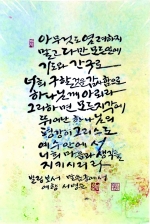 아무것도 염려하지
말고 다만 모든 일에
기도와 간구로
너희 구할 것을 감사함으로
하나님께 아뢰라
그리하면 모든 지각에
뛰어난 하나님의
평강이 그리스도
예수 안에서
너희 마음과 생각을
지키시리라
빌립보서 말씀중에서